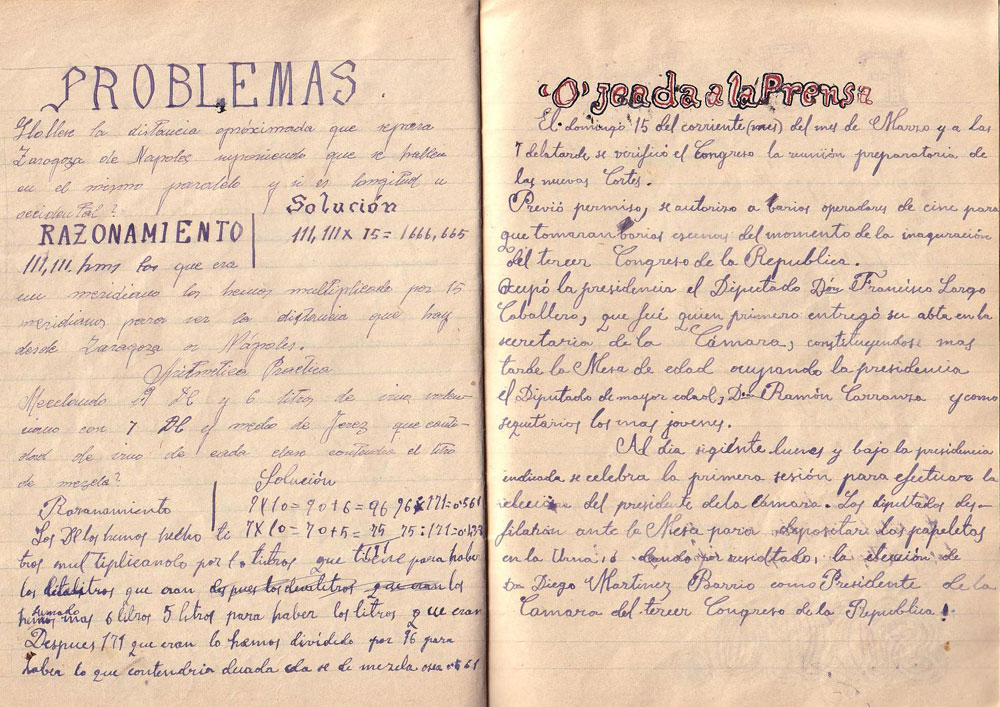 PROBLEMAS
Hallese la distancia apróximada que separa
Zaragoza de Napoles suponiendo que se hallen
en el mismo paralelo y si es longitud o
ccidental?
Solución
RAZONAMIENTO
111,111 x 15 = 1666,665
111,111. kms los que era
un meridiano los hemos multiplicado por 15
meridianos para ver la distancia que hay
desde Zaragoza a Nápoles.
Aritmética Practica
Mezclando 9 DL y 6 litros de vino valen-
ciano con 7 DL y medio de Jerez que canti-
dad de vino de cada clase contendra el litro
de mezcla?
Solución
Razonamiento
9X10=90+6=96 96:171=0'561
Los Dl los hemos hecho li 7X10=70+5=75 75:171=0
tros multiplicanolo por 10 litros que tiene para haber
los que eran
hemos sumado mas 6 litros 5 litros para haber los litros que eran
Despues 171 que eran lo hemos dividido por 96 para
haber lo que contendria de mezcla osea 0'561
'O'jeada a la Prensa
El domingo 15 del corriente (mes) del mes de Marzo y a las
7 de la tarde se verificó el Congreso la reunión preparatoria de
las nuevas Cortes.
Previó permiso, se autorizo a barios operadores de cine para
que tomaran barias escenas del momento de la inaguración
del tercer Congreso de la Republica.
Ocupó la presidencia el Diputado Don Francisco Largo
Caballero, que fué quien primero entregó su abta en la
secretaria de la Cámara, constituyendose mas
tarde la Mesa de edad ocupando la presidencia
el Diputado de mayor edad, Don Ramón Carranza y como
sequitarios los mas jovenes.
Al dia sigiente lunes y bajo la presidencia
indicada se celebra la primera sesión para efectuar la
elección del presidente de la cámara. Los diputados des-
filarán ante la Mesa para depositar las papeletas
en la Urna, dando por resultado, la elección de
Don Diego Martinez Barrio como Presidente de la
Camara del tercer Congreso de la Republica!